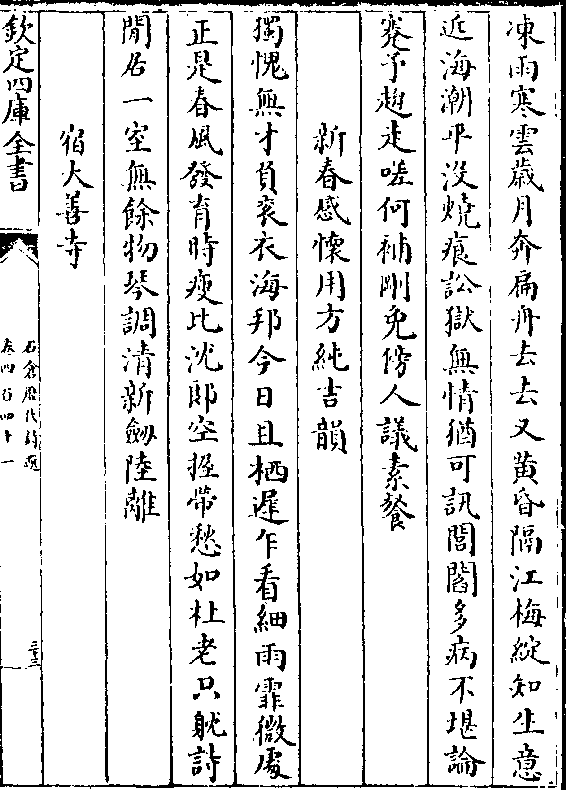 凍雨寒雲歲月奔扁舟去去又黃昏隔江梅綻知生意
近海潮平沒燒痕訟獄無情猶可訊閭閻多病不堪論
蹇予趨走嗟何補剛免傍人議素餐
新春感懷用方純吉韻
獨愧無才負袞衣海邦今日且栖遲乍看細雨霏微處
正是春風發育時瘦比沈郎空擁帶愁如杜老只躭詩
閒居一室無餘物琴調清新劒陸離
宿大善寺
欽定四庫全書
石倉歷代詩選
卷四百四十一
三十三